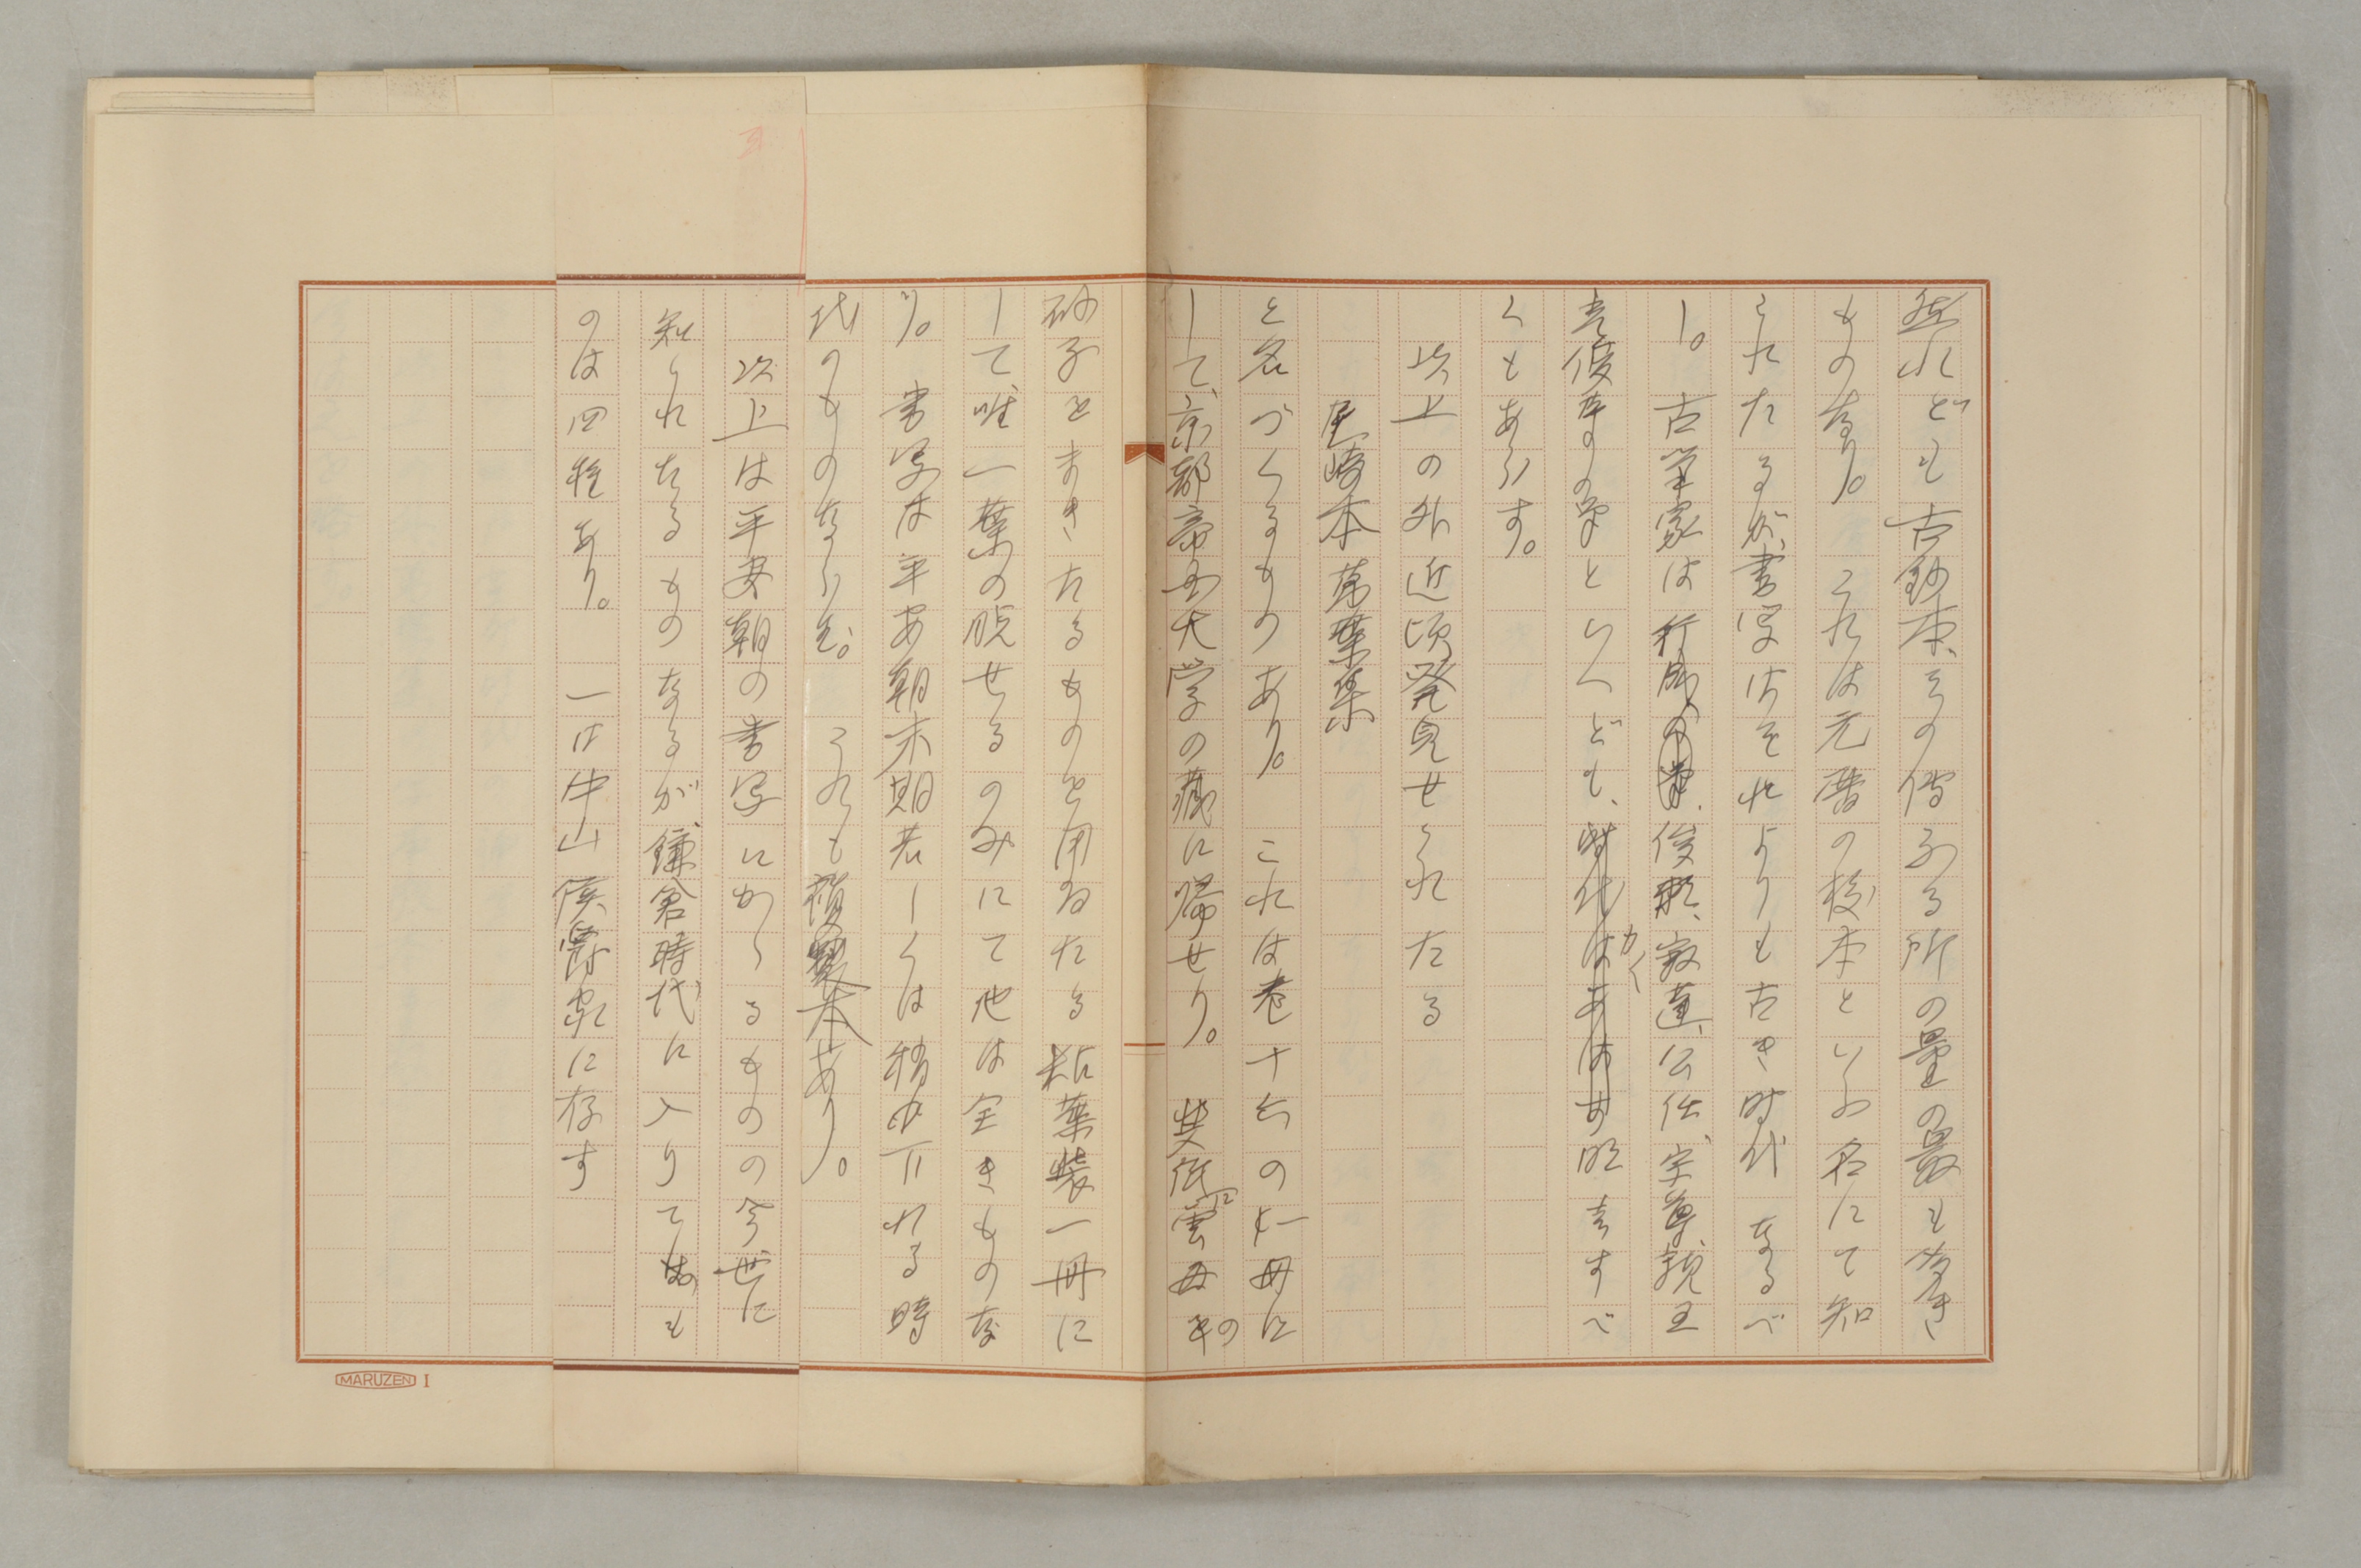 然れども古鈔本、その伝ふる所の量の最も多き
ものなり。これは元暦の校本といふ名にて知
られたるが、書写はそれよりも古き時代なるべ
し。古筆家は行成、俊頼、寂蓮、公任、宗尊親王
等の筆といへども、かく明言すべ
くもあらず。
以上の外近頃発見せられたる
尼崎本萬葉集
と名づくるものあり。これは巻十六の一冊に
して、京都帝国大学の蔵に帰せり。斐紙に雲母の
砂子をまきたるものを用ゐたる粘葉装一冊に
して、唯一葉の脱せるのみにて他は全きものな
り。書写は平安朝末期若しくは稍下れる時
代のものならむ。これも複製本あり。
以上は平安朝の書写にかゝるものの今世に
知られたるものなるが、鎌倉時代に入りても
のは四種あり。一は中山侯爵家に存す
五
MARUZEN I